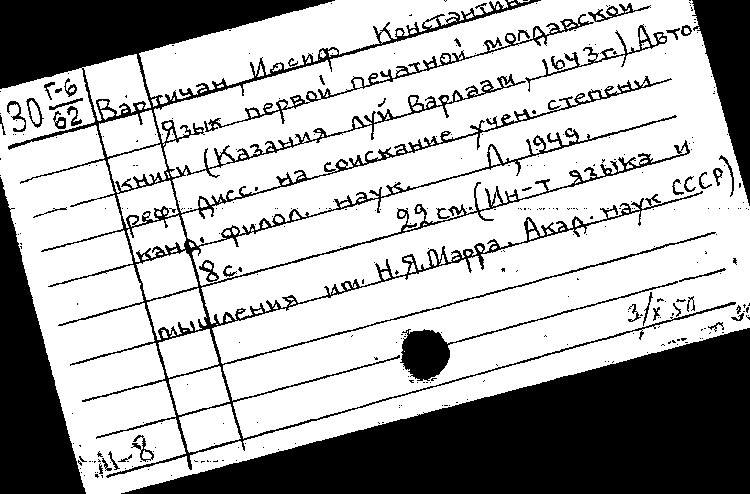 130 Г-6/62 Вартичан, Иосиф
Язык первой печатной молдавской
книги (Казания луй Варлаам, 1643г.). Авто-
реф. дисс. на соискание учен. степени
канд. филол. наук. Л., 1949.
8с. 22 см. (Ин-т языка и
мышления им. Н.Я.Марра. Акад. наук СССР).
3/X 50
М-8